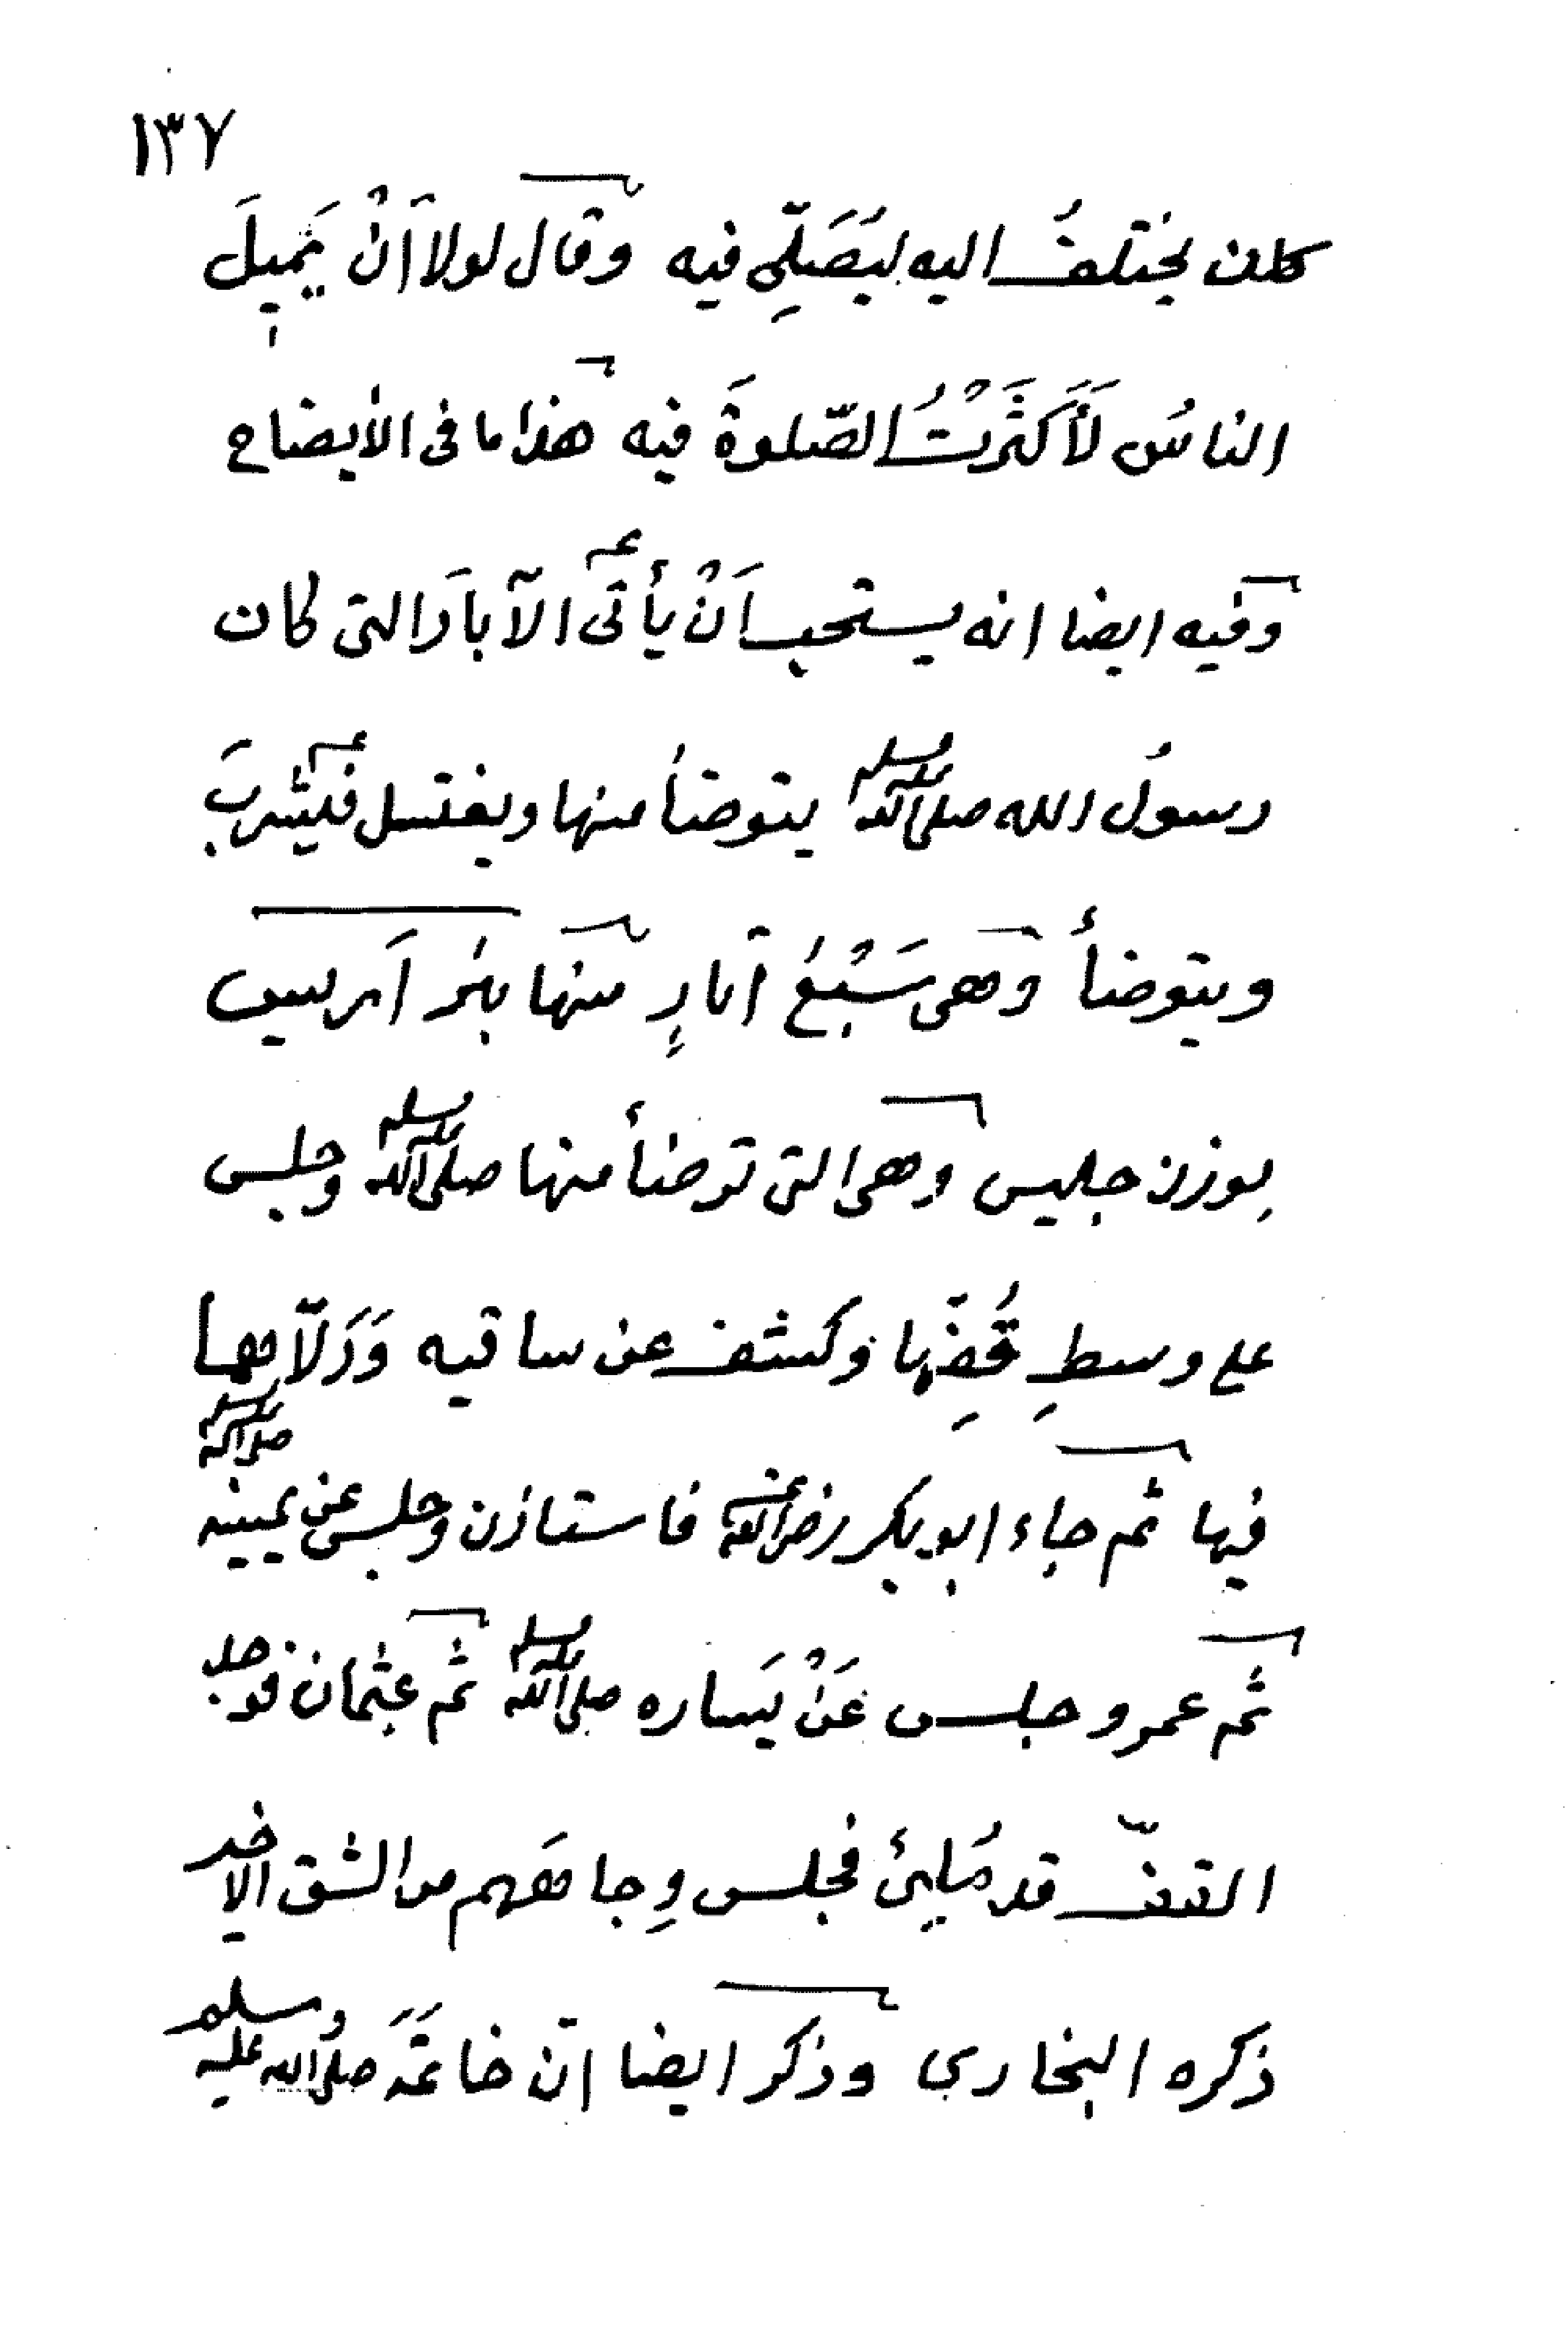 ١٣٧
كان يختلفُ اليه ليُصَلِّي فيه وقال لولا اَنْ يَميلَ
الناسُ لَأَكثَرْتُ الصّلوةَ فيه هذا ما فى الايضاح
وفيه ايضا انه يستحب اَنْ يأتى الآبارَ التى كان
رسولُ الله صلى الله عليه وسلم يتوضأ منها ويغتسل فيشربَ
ويتوضأ وهى سَبْعُ آبارٍ منها بئر اَريس
بِوزن جليس وهى التى توضأ منها صلى الله عليه وسلم وجلس
على وسطِ قُفِّها وكشف عن ساقيه وَدَلّاهما
فيها ثم جاء ابو بكر رضى الله عنه فاستاذن وجلس عن يمينه صلى الله عليه وسلم
ثم عمر وجلس عَنْ يَساره صلى الله عليه وسلم ثم عثمان فوجد
القفّ قد مُلِئَ فجلس وِجاههم من الشق الاخر
ذكره البخاري وذكر ايضا انّ خاتمَه صلى الله عليه وسلم